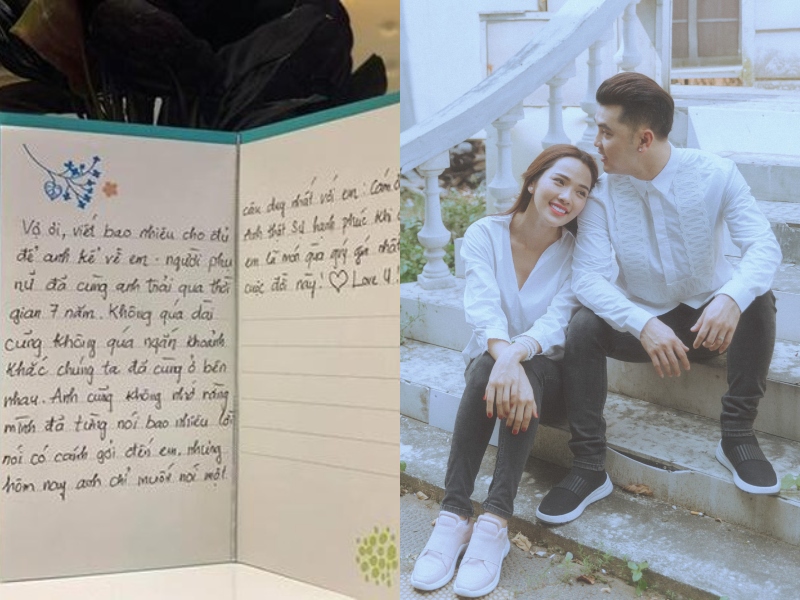 Vợ ơi, viết bao nhiêu cho đủ
để anh kể về em - người phụ
nữ đã cùng anh trải qua thời
gian 7 năm. Không quá dài
cũng không quá ngắn khoảnh
khắc chúng ta đã cùng ở bên
nhau. Anh cũng không nhớ rằng
mình đã từng nói bao nhiêu lời
nói có cánh gởi đến em, nhưng
hôm nay anh chỉ muốn nói một
câu duy nhất với em: Cám
Anh thật sự hạnh phúc khi
em là món quà quý giá nhất
cuộc đời này! ♡ Love U.!